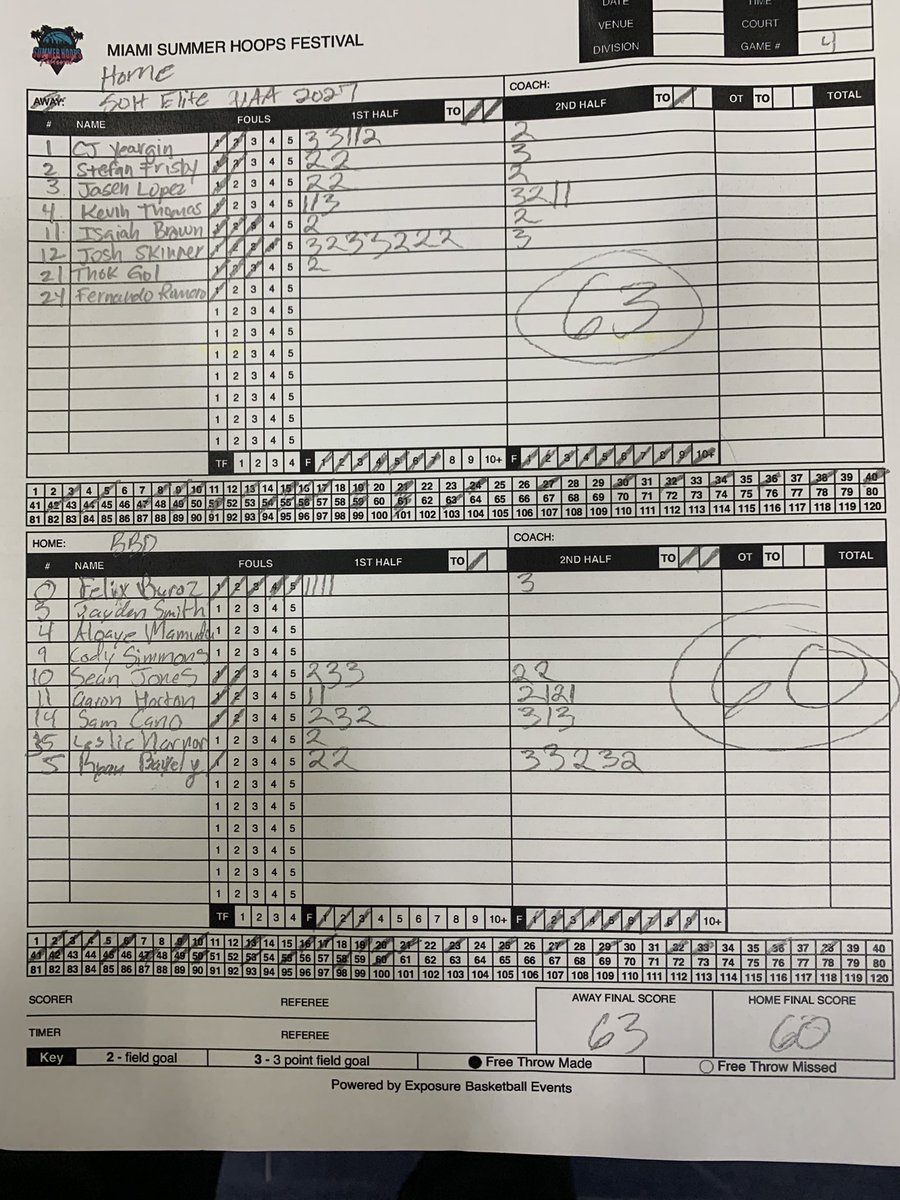 DATE TIME
VENUE COURT
DIVISION GAME # 4
SUMMER HOOPS
Festival
MIAMI SUMMER HOOPS FESTIVAL
Home
AWAY: SOH Elite UAA 2027 COACH:
# NAME FOULS 1ST HALF TO 2ND HALF TO OT TO TOTAL
1 CJ Yeargin 1 2 3 4 5 33112 2
2 Stefan Frisby 1 2 3 4 5 22 3
3 Jasen Lopez 1 2 3 4 5 22 2
4 Kevin Thomas 1 2 3 4 5 113 3211
11 Isaiah Brown 1 2 3 4 5 2 2
12 Josh Skinner 1 2 3 4 5 3233222 3
21 Thok Gol 1 2 3 4 5 2
24 Fernando Romero 1 2 3 4 5
1 2 3 4 5 63
1 2 3 4 5
1 2 3 4 5
1 2 3 4 5
1 2 3 4 5
1 2 3 4 5
1 2 3 4 5
TF 1 2 3 4 F 1 2 3 4 5 6 7 8 9 10+ F 1 2 3 4 5 6 7 8 9 10+
1 2 3 4 5 6 7 8 9 10 11 12 13 14 15 16 17 18 19 20 21 22 23 24 25 26 27 28 29 30 31 32 33 34 35 36 37 38 39 40
41 42 43 44 45 46 47 48 49 50 51 52 53 54 55 56 57 58 59 60 61 62 63 64 65 66 67 68 69 70 71 72 73 74 75 76 77 78 79 80
81 82 83 84 85 86 87 88 89 90 91 92 93 94 95 96 97 98 99 100 101 102 103 104 105 106 107 108 109 110 111 112 113 114 115 116 117 118 119 120
HOME: BBD COACH:
# NAME FOULS 1ST HALF TO 2ND HALF TO OT TO TOTAL
0 Felix Buroz 1 2 3 4 5 1111 3
3 Jayden Smith 1 2 3 4 5
4 Algaye Mamudu 1 2 3 4 5
9 Cody Simmons 1 2 3 4 5
10 Sean Jones 1 2 3 4 5 233 22
11 Aaron Horton 1 2 3 4 5 11 2121
14 Sam Cano 1 2 3 4 5 232 313
35 Leslie 1 2 3 4 5 2
5 Ryan 1 2 3 4 5 22 33232
60
1 2 3 4 5
1 2 3 4 5
1 2 3 4 5
1 2 3 4 5
1 2 3 4 5
1 2 3 4 5
TF 1 2 3 4 F 1 2 3 4 5 6 7 8 9 10+ F 1 2 3 4 5 6 7 8 9 10+
1 2 3 4 5 6 7 8 9 10 11 12 13 14 15 16 17 18 19 20 21 22 23 24 25 26 27 28 29 30 31 32 33 34 35 36 37 38 39 40
41 42 43 44 45 46 47 48 49 50 51 52 53 54 55 56 57 58 59 60 61 62 63 64 65 66 67 68 69 70 71 72 73 74 75 76 77 78 79 80
81 82 83 84 85 86 87 88 89 90 91 92 93 94 95 96 97 98 99 100 101 102 103 104 105 106 107 108 109 110 111 112 113 114 115 116 117 118 119 120
SCORER REFEREE AWAY FINAL SCORE HOME FINAL SCORE
TIMER REFEREE 63 60
Key 2 - field goal 3 - 3 point field goal Free Throw Made Free Throw Missed
Powered by Exposure Basketball Events